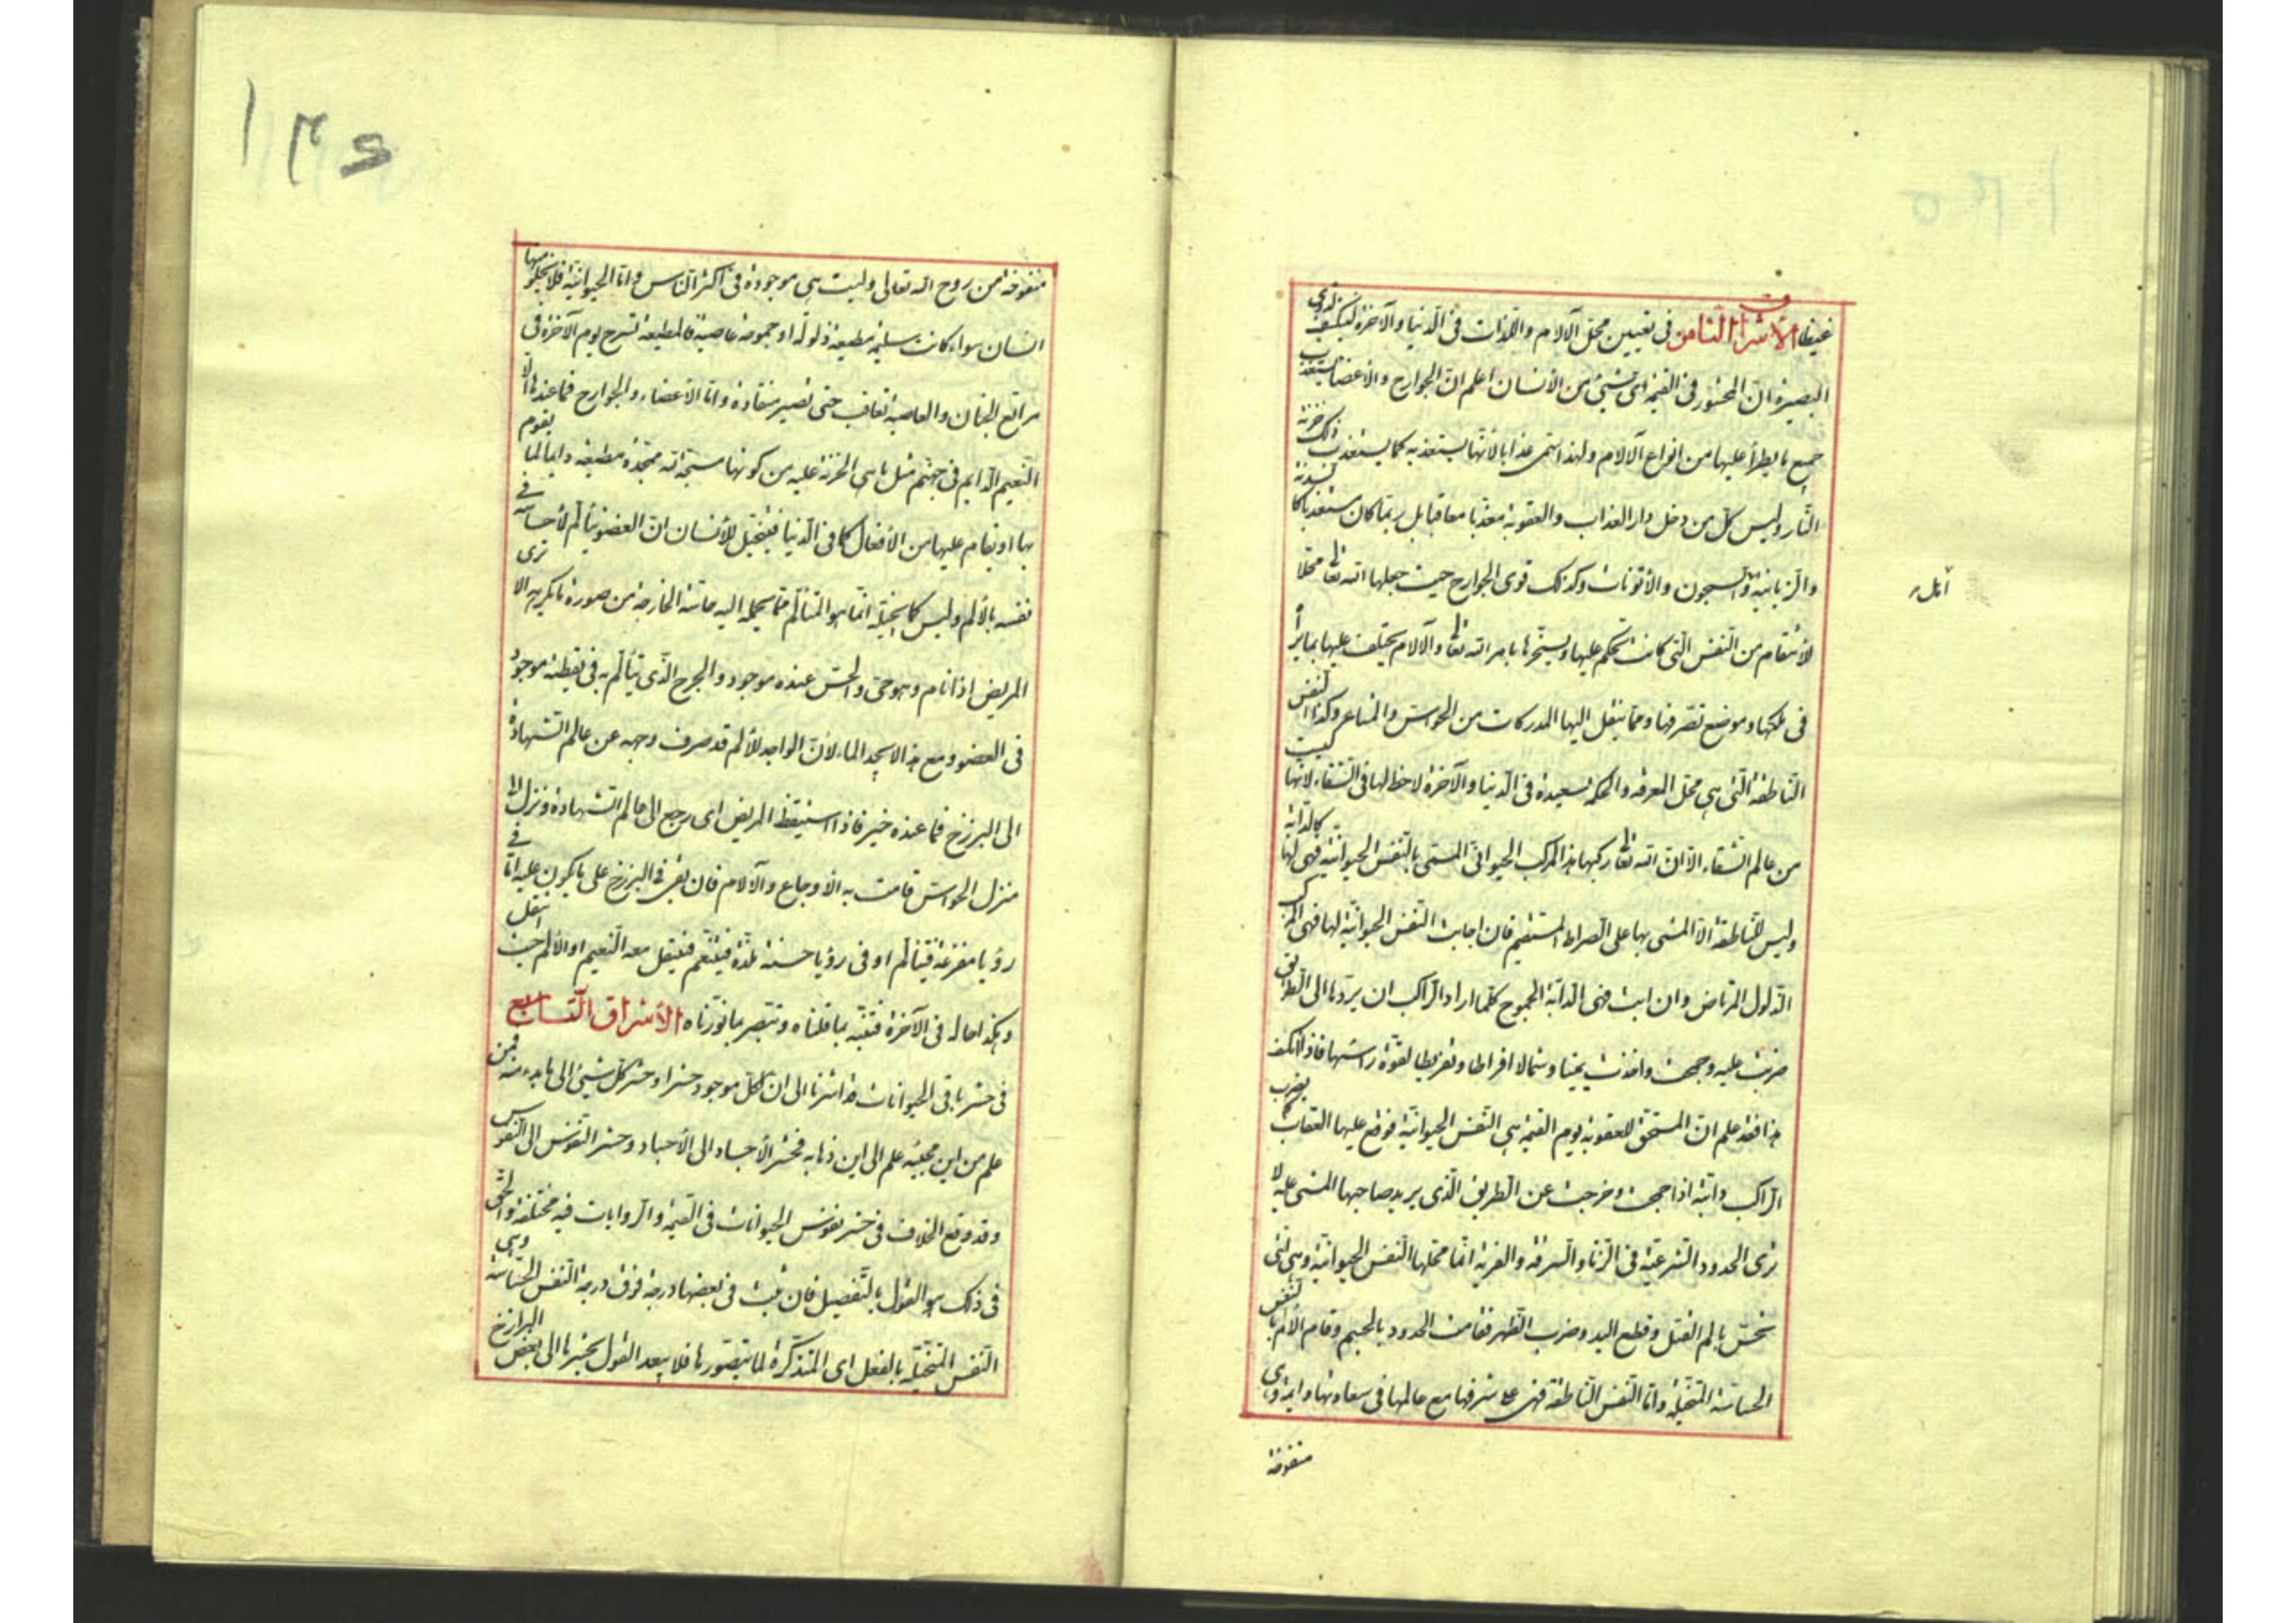 غيظا الأشراق الثامن فى تعيين محل الآلام واللذات فى الدنيا والآخرة لينكشف لذوى
البصيرة ان المحشور فى القيمة اى شىء من الأنسان اعلم ان الجوارح والأعضاء يستعذب
جميع ما يطرأ عليها من انواع الآلام ولهذا سمى عذابا لأنها يستعذبه كما يستعذب ذلك خزنة
النار وليس كل من دخل دار العذاب والعقوبة معذبا معاقبا بل ربما كان مستعذبا كالسدنة
والزبانية والسجون والأتونات وكذلك قوى الجوارح حيث جعلها الله تعا محلا
للأنتقام من النفس التى كانت تحكم عليها ويسخرها بامر الله تعا والآلام يختلف عليها بما يراه
فى ملكها وموضع تصرفها ومما ينقل اليها المدركات من الحواس والمشاعر وكذا النفس
الناطقة التى هى محل المعرفة والحكمة سعيدة فى الدنيا والآخرة لا حظ لها فى الشقاء لأنها ليست
من عالم الشقاء الا ان الله تعا ركبها هذا المركب الحيوانى المسمى بالنفس الحيوانية فهى لها كالدابة
وليس للناطقة الا المشى بها على الصراط المستقيم فان اجابت النفس الحيوانية لها فهى المركب
الذلول المرتاض وان ابت فهى الدابة الجموح كلما اراد الراكب ان يردها الى الطريق
حزنت عليه وجمحت واخذت يمينا وشمالا افراطا وتفريطا لقوة راسها فاذا انكشف
هذا فقد علم ان المستحق للعقوبة يوم القيمة هى النفس الحيوانية فوقع عليها العقاب كما يضرب
الراكب دابته اذا جمحت وخرجت عن الطريق الذى يريد صاحبها المشى عليه الا
ترى الحدود الشرعية فى الزنا والسرقة والفرية انما محلها النفس الحيوانية وهى التى
تحس بالم القتل وقطع اليد وضرب الظهر فقامت الحدود بالجسم وقام الألم بالنفس
الحساسة المتخيلة واما النفس الناطقة فهى على شرفها مع عالمها فى سعادتها دايمة وهى
منفوخة
أتل
١٣٤
منفوخة من روح الله تعالى وليست هى موجودة فى اكثر الناس واما الحيوانية فلا يخلو منها
انسان سواء كانت سليمة مطيعة ذلولة او جموحة عاصية فالمطيعة تسرح يوم الآخرة فى
مراتع الجنان والعاصية تعاقب حتى تصير منقادة واما الأعضاء والجوارح فما عندها الا
النعيم الدايم فى جهنم مثل ما هى الخزنة عليه من كونها مسبحة لله ممجدة مطيعة دايما لما يقوم
بها او يقام عليها من الأفعال كما فى الدنيا فيتخيل للأنسان ان العضو يتألم لأحساسه فى
نفسه بالألم وليس كما يتخيله انما هو المتألم مما يحمله اليه حاسة الخارجة من صورة ما يكرهه الا ترى
المريض اذا نام وهو حى والحس عنده موجود والجرح الذى يتألم به فى يقظته موجود
فى العضو ومع هذا لا يجد الما لأن الواجد للألم قد صرف وجهه عن عالم الشهادة
الى البرزخ فما عنده خير فاذا استيقظ المريض اى رجع الى عالم الشهادة ونزل الى
منزل الحواس قامت به الأوجاع والآلام فان بقى فى البرزخ على ما يكون عليه اما فى
رؤيا مفزعة فيتألم او فى رؤيا حسنة ملذة فيتنعم فينتقل معه النعيم او الألم حيث انتقل
وهكذا حاله فى الآخرة فتنبه بما قلناه وتبصر بما نورناه الأشراق التاسع
فى حشر باقى الحيوانات قد اشرنا الى ان لكل موجود حشرا وحشر كل شىء الى ما بدء منه فمن
علم من اين مجيئه علم الى اين ذهابه فحشر الأجساد الى الأجساد وحشر النفوس الى النفوس
وقد وقع الخلاف فى حشر نفوس الحيوانات فى القيمة والروايات فيه مختلفة والحق
فى ذلك هو القول بالتفصيل فان ثبت فى بعضها درجة فوق درجة النفس الحساسة وهى
النفس المتخيلة بالفعل اى المتذكرة لما يتصورها فلا يبعد القول بحشرها الى بعض البرازخ